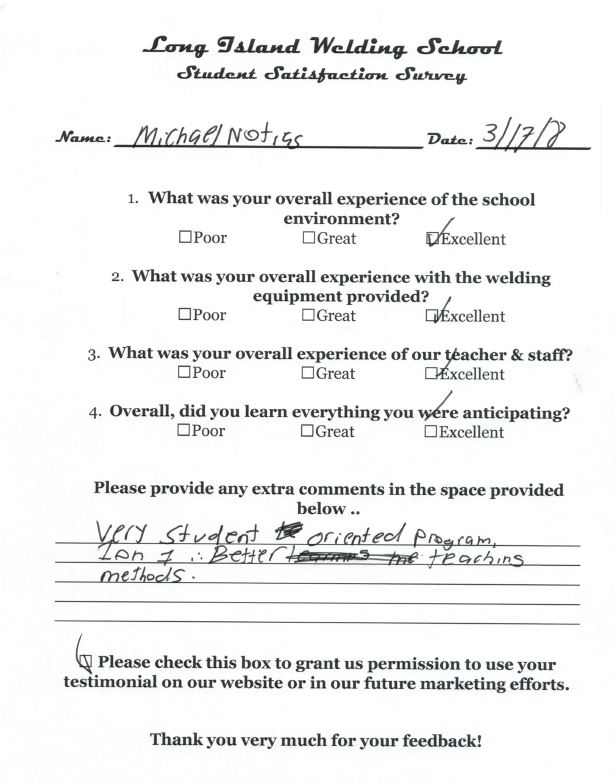 Long Island Welding School
Student Satisfaction Survey
Name: Michael Notias Date: 3/17/8
1. What was your overall experience of the school
environment?
☐Poor ☐Great ☑Excellent
2. What was your overall experience with the welding
equipment provided?
☐Poor ☐Great ☑Excellent
3. What was your overall experience of our teacher & staff?
☐Poor ☐Great ☑Excellent
4. Overall, did you learn everything you were anticipating?
☐Poor ☐Great ☐Excellent
Please provide any extra comments in the space provided
below ..
Very student oriented program,
1on 1 ∴ Better teaching
methods.
☑ Please check this box to grant us permission to use your
testimonial on our website or in our future marketing efforts.
Thank you very much for your feedback!